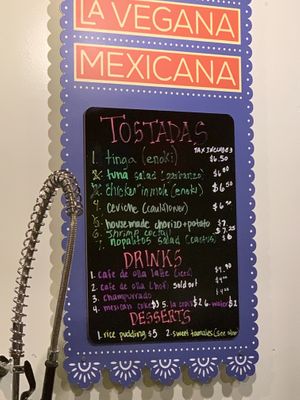 LA VEGANA
MEXICANA
TOSTADAS
TAX INCLUDED
1. tinga (enoki) $6.50
tuna salad (garbanzo) $6.00
chicken in mole (enoki) $6.50
4. ceviche (cauliflower) $6.50
5. house made chorizo + potato $7
6. shrimp coctail $7.25
nopalitos salad (cactus) $6
DRINKS
1. cafe de olla latte (iced)
2. cafe de olla (hot) sold out
3. champurrado
4. mexican coke $3 5. la croix $2 6. water $2
DESSERTS
1. rice pudding $5 2. sweet tamales (see